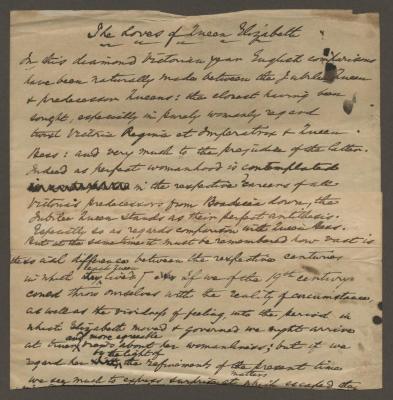 The Loves of Queen Elizabeth
In this diamond Victorian year English comparisons
have been naturally made between the Jubilee Queen
& predecessor Queens: the closest having been
sought, especially in purely womanly regard
twixt Victoria Regina et Imperatrix & Queen
Bess: and very much to the prejudice of the latter.
Indeed as perfect womanhood is contemplated
in the respective careers of all
Victoria's predecessors from Boadicea down, the
Jubilee Queen stands as their perfect antithesis.
Especially so as regards comparison with Queen Bess.
But at the same time it must be remembered how vast is
the social difference between the respective centuries
in which each Queen lived. If we of the 19th century
could throw ourselves with the reality of circumstance,
as well as the vividness of feeling, into the period in
which Elizabeth moved & governed we might arrive
at and more agreeable views about her womanliness; but if we
regard her by the light of the refinements of the present time
we see much to express surprise at matters which escaped the